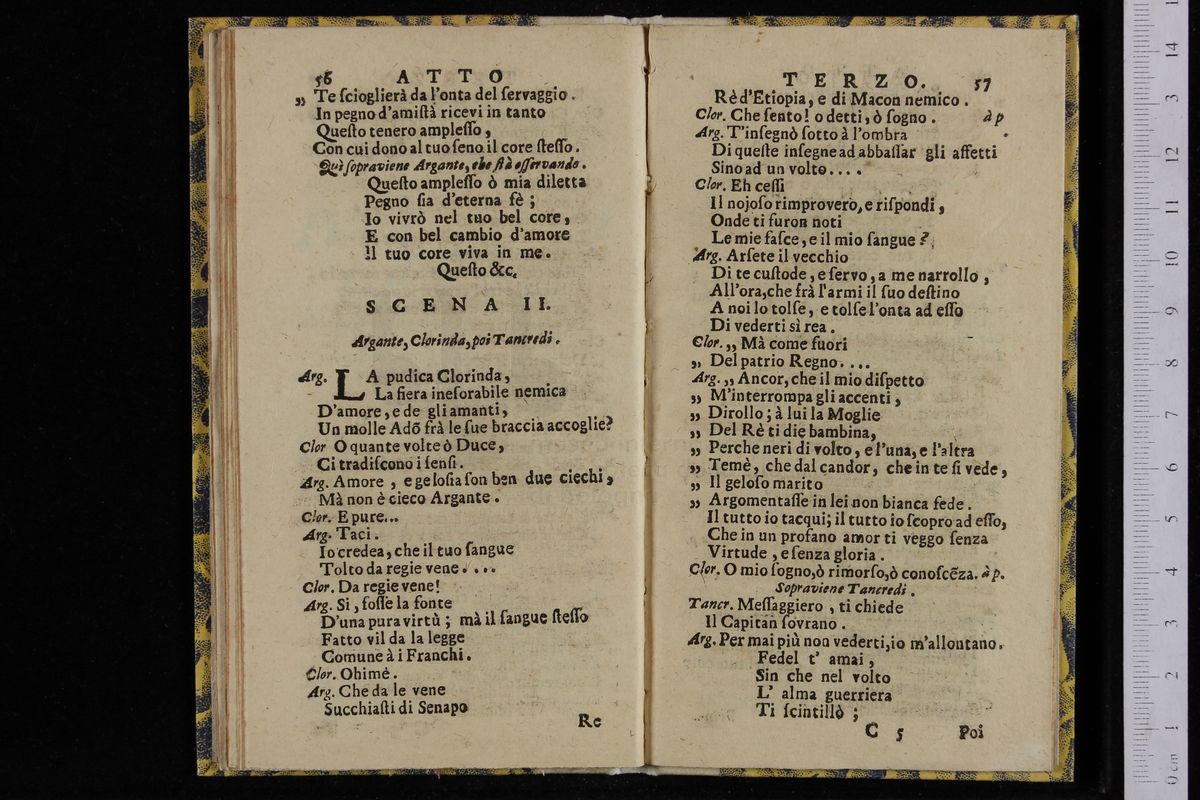 56 ATTO
„ Te ſcioglierà da l'onta del ſervaggio.
In pegno d'amiſtà ricevi in tanto
Queſto tenero ampleſſo,
Con cui dono al tuo ſeno il core ſteſſo.
Quì ſopraviene Argante, che ſtà oſſervando.
Queſto ampleſſo ò mia diletta
Pegno ſia d'eterna fè;
Io vivrò nel tuo bel core,
E con bel cambio d'amore
Il tuo core viva in me.
Queſto &c.
SCENA II.
Argante, Clorinda, poi Tancredi.
Arg. LA pudica Clorinda,
La fiera ineſorabile nemica
D'amore, e de gli amanti,
Un molle Adõ frà le ſue braccia accoglie?
Clor O quante volte ò Duce,
Ci tradiſcono i ſenſi.
Arg. Amore, e geloſia ſon ben due ciechi,
Mà non è cieco Argante.
Clor. E pure...
Arg. Taci.
Io credea, che il tuo ſangue
Tolto da regie vene....
Clor. Da regie vene!
Arg. Si, foſſe la fonte
D'una pura virtù; mà il ſangue ſteſſo
Fatto vil da la legge
Comune à i Franchi.
Clor. Ohimè.
Arg. Che da le vene
Succhiaſti di Senapo
Re
TERZO. 57
Rè d'Etiopia, e di Macon nemico.
Clor. Che ſento! o detti, ò ſogno. à p
Arg. T'inſegnò ſotto à l'ombra
Di queſte inſegne ad abbaſſar gli affetti
Sino ad un volto....
Clor. Eh ceſſi
Il nojoſo rimprovero, e riſpondi,
Onde ti furon noti
Le mie faſce, e il mio ſangue?
Arg. Arſete il vecchio
Di te cuſtode, e ſervo, a me narrollo,
All'ora, che frà l'armi il ſuo deſtino
A noi lo tolſe, e tolſe l'onta ad eſſo
Di vederti sì rea.
Clor. „ Mà come fuori
„ Del patrio Regno....
Arg. „ Ancor, che il mio diſpetto
„ M'interrompa gli accenti,
„ Dirollo; à lui la Moglie
„ Del Rè ti diè bambina,
„ Perche neri di volto, e l'una, e l'altra
„ Temè, che dal candor, che in te ſi vede,
„ Il geloſo marito
„ Argomentaſſe in lei non bianca fede.
Il tutto io tacqui; il tutto io ſcopro ad eſſo,
Che in un profano amor ti veggo ſenza
Virtude, e ſenza gloria.
Clor. O mio ſogno, ò rimorſo, ò conoſcẽza. à p.
Sopraviene Tancredi.
Tancr. Meſſaggiero, ti chiede
Il Capitan ſovrano.
Arg. Per mai più non vederti, io m'allontano.
Fedel t' amai,
Sin che nel volto
L' alma guerriera
Ti ſcintillò;
C 5 Poi